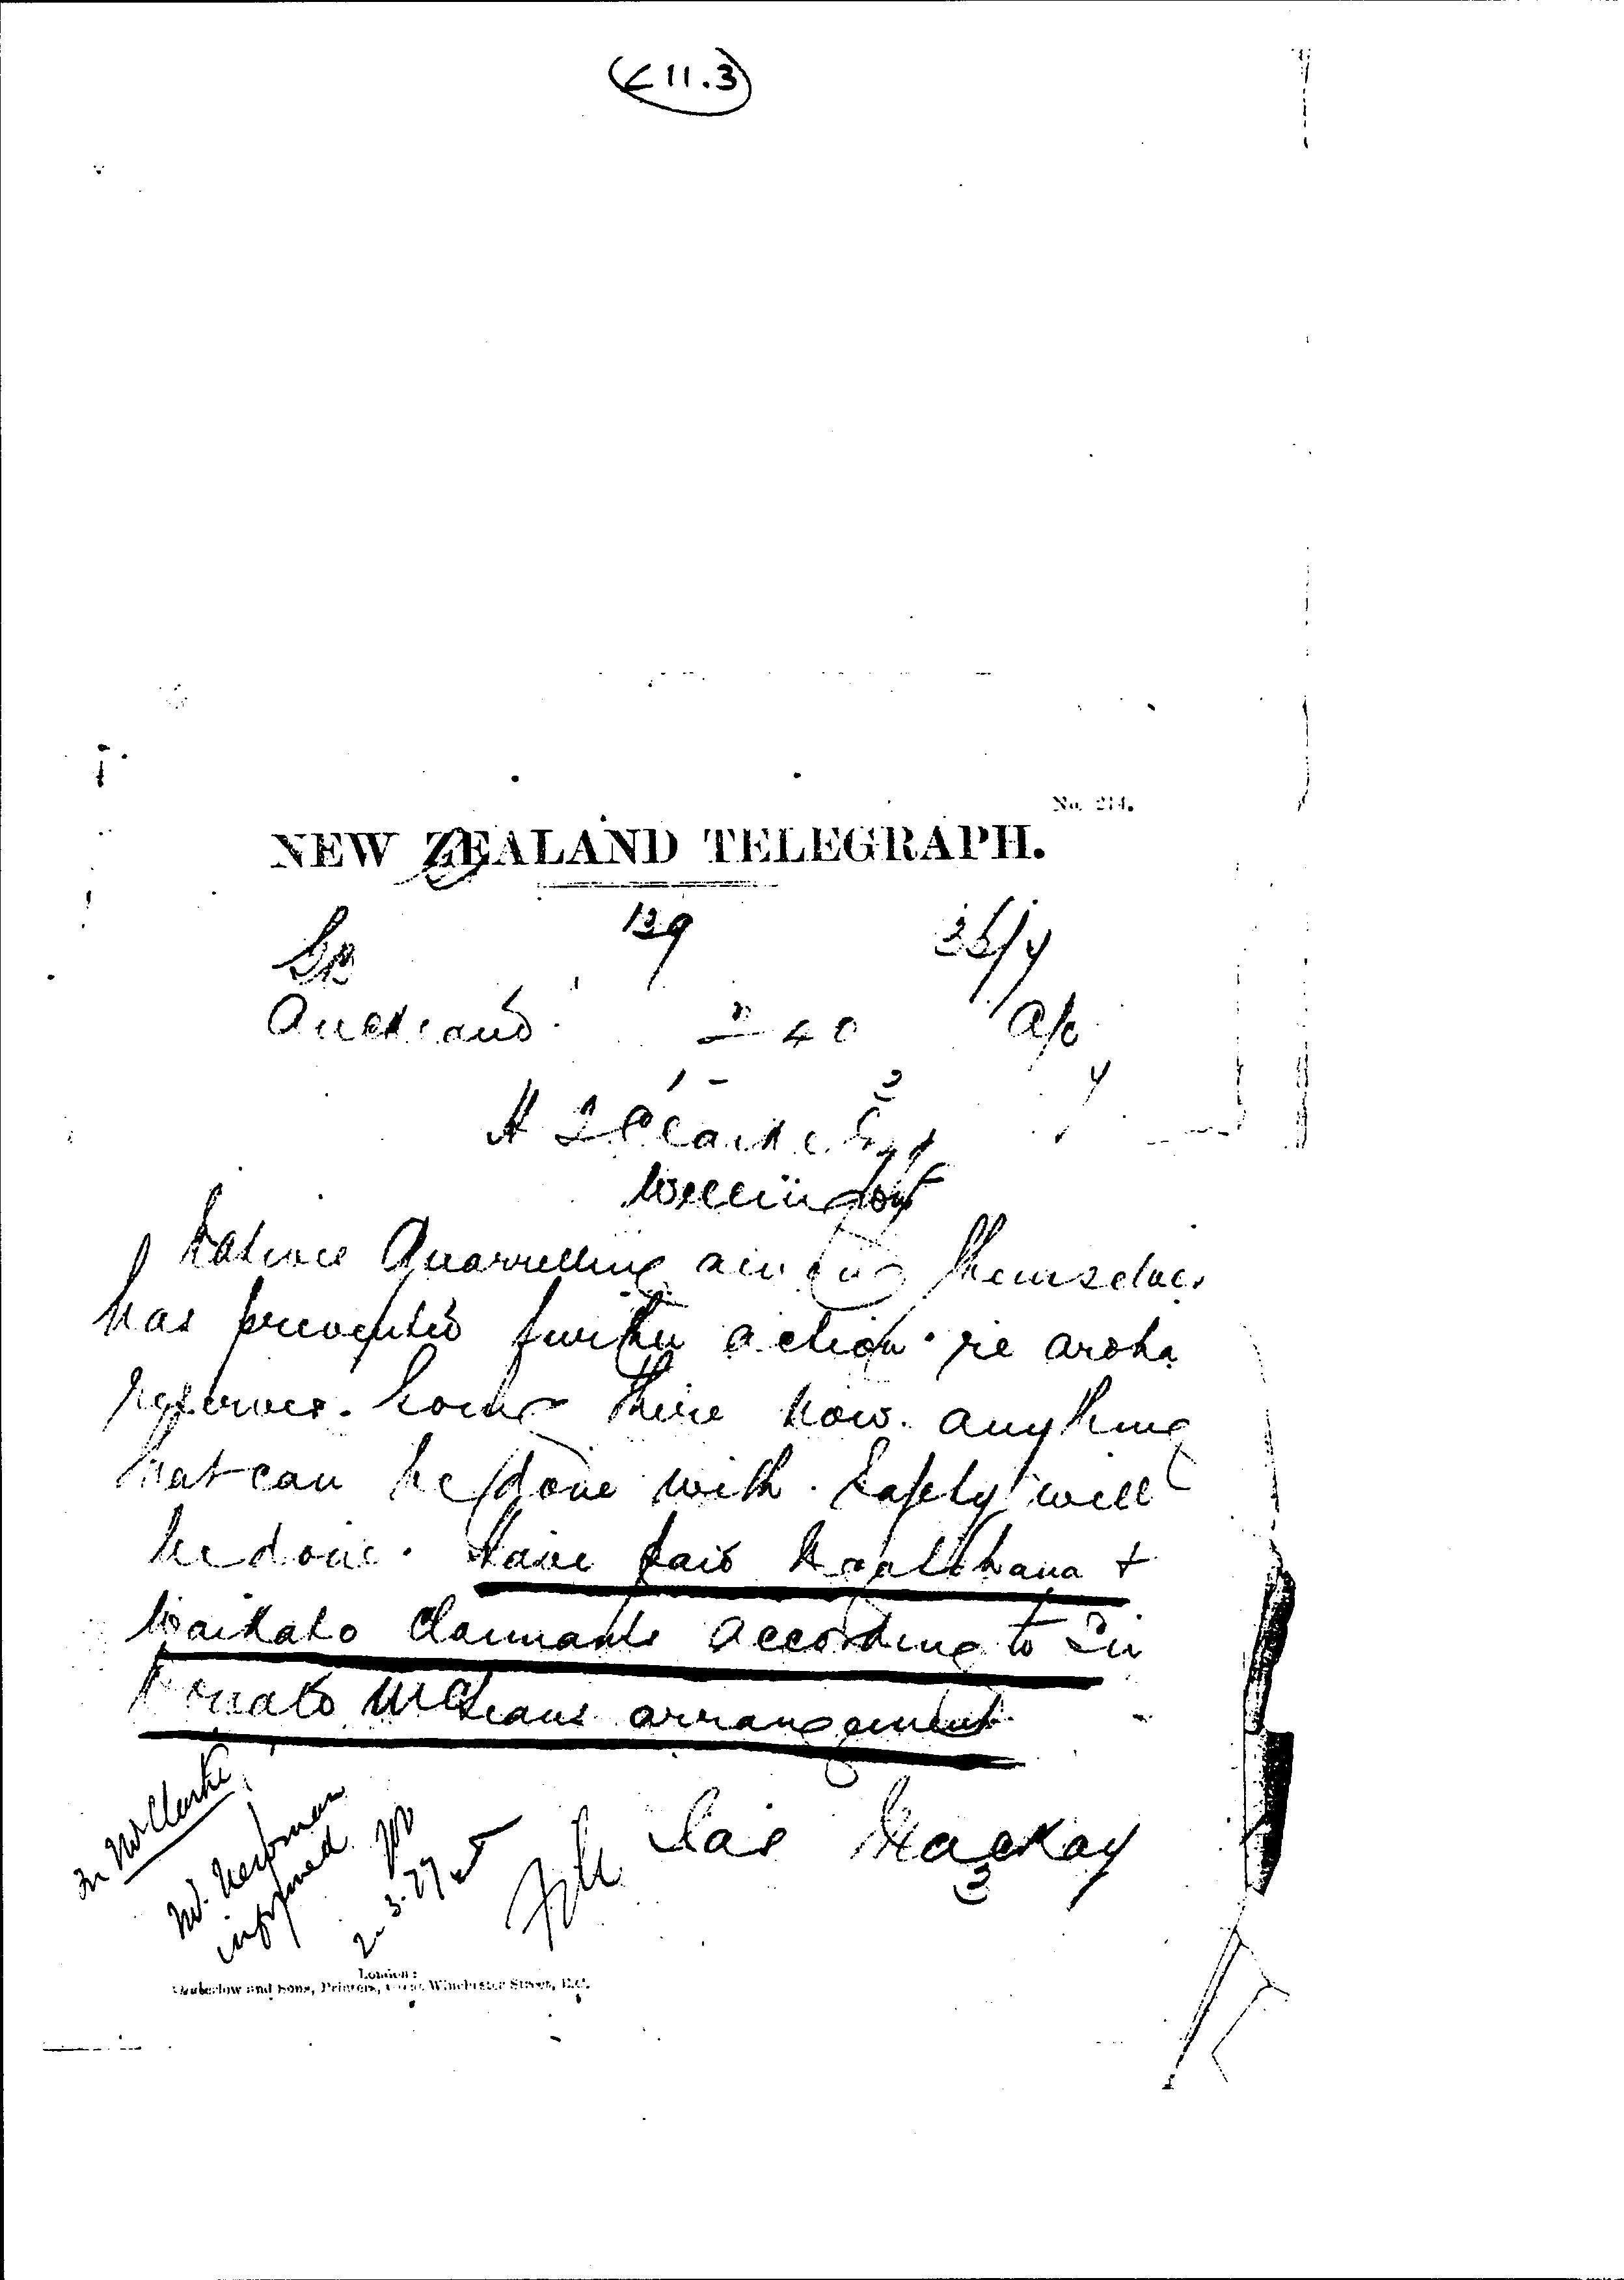 11.3
No. 214.
NEW ZEALAND TELEGRAPH.
139
Auckland 40
H T Clarke Esq
Wellington
Natives Quarrelling among themselves
has prevented further action re aroha
reserves. Going there now. anything
that can be done with safety will
be done. Have paid &
Waikato Claimants according to Sir
Donald McLeans arrangement
Jas Mackay
Mr Clarke
informed
File
London:
Waterlow and Sons, Printers, Great Winchester Street, E.C.